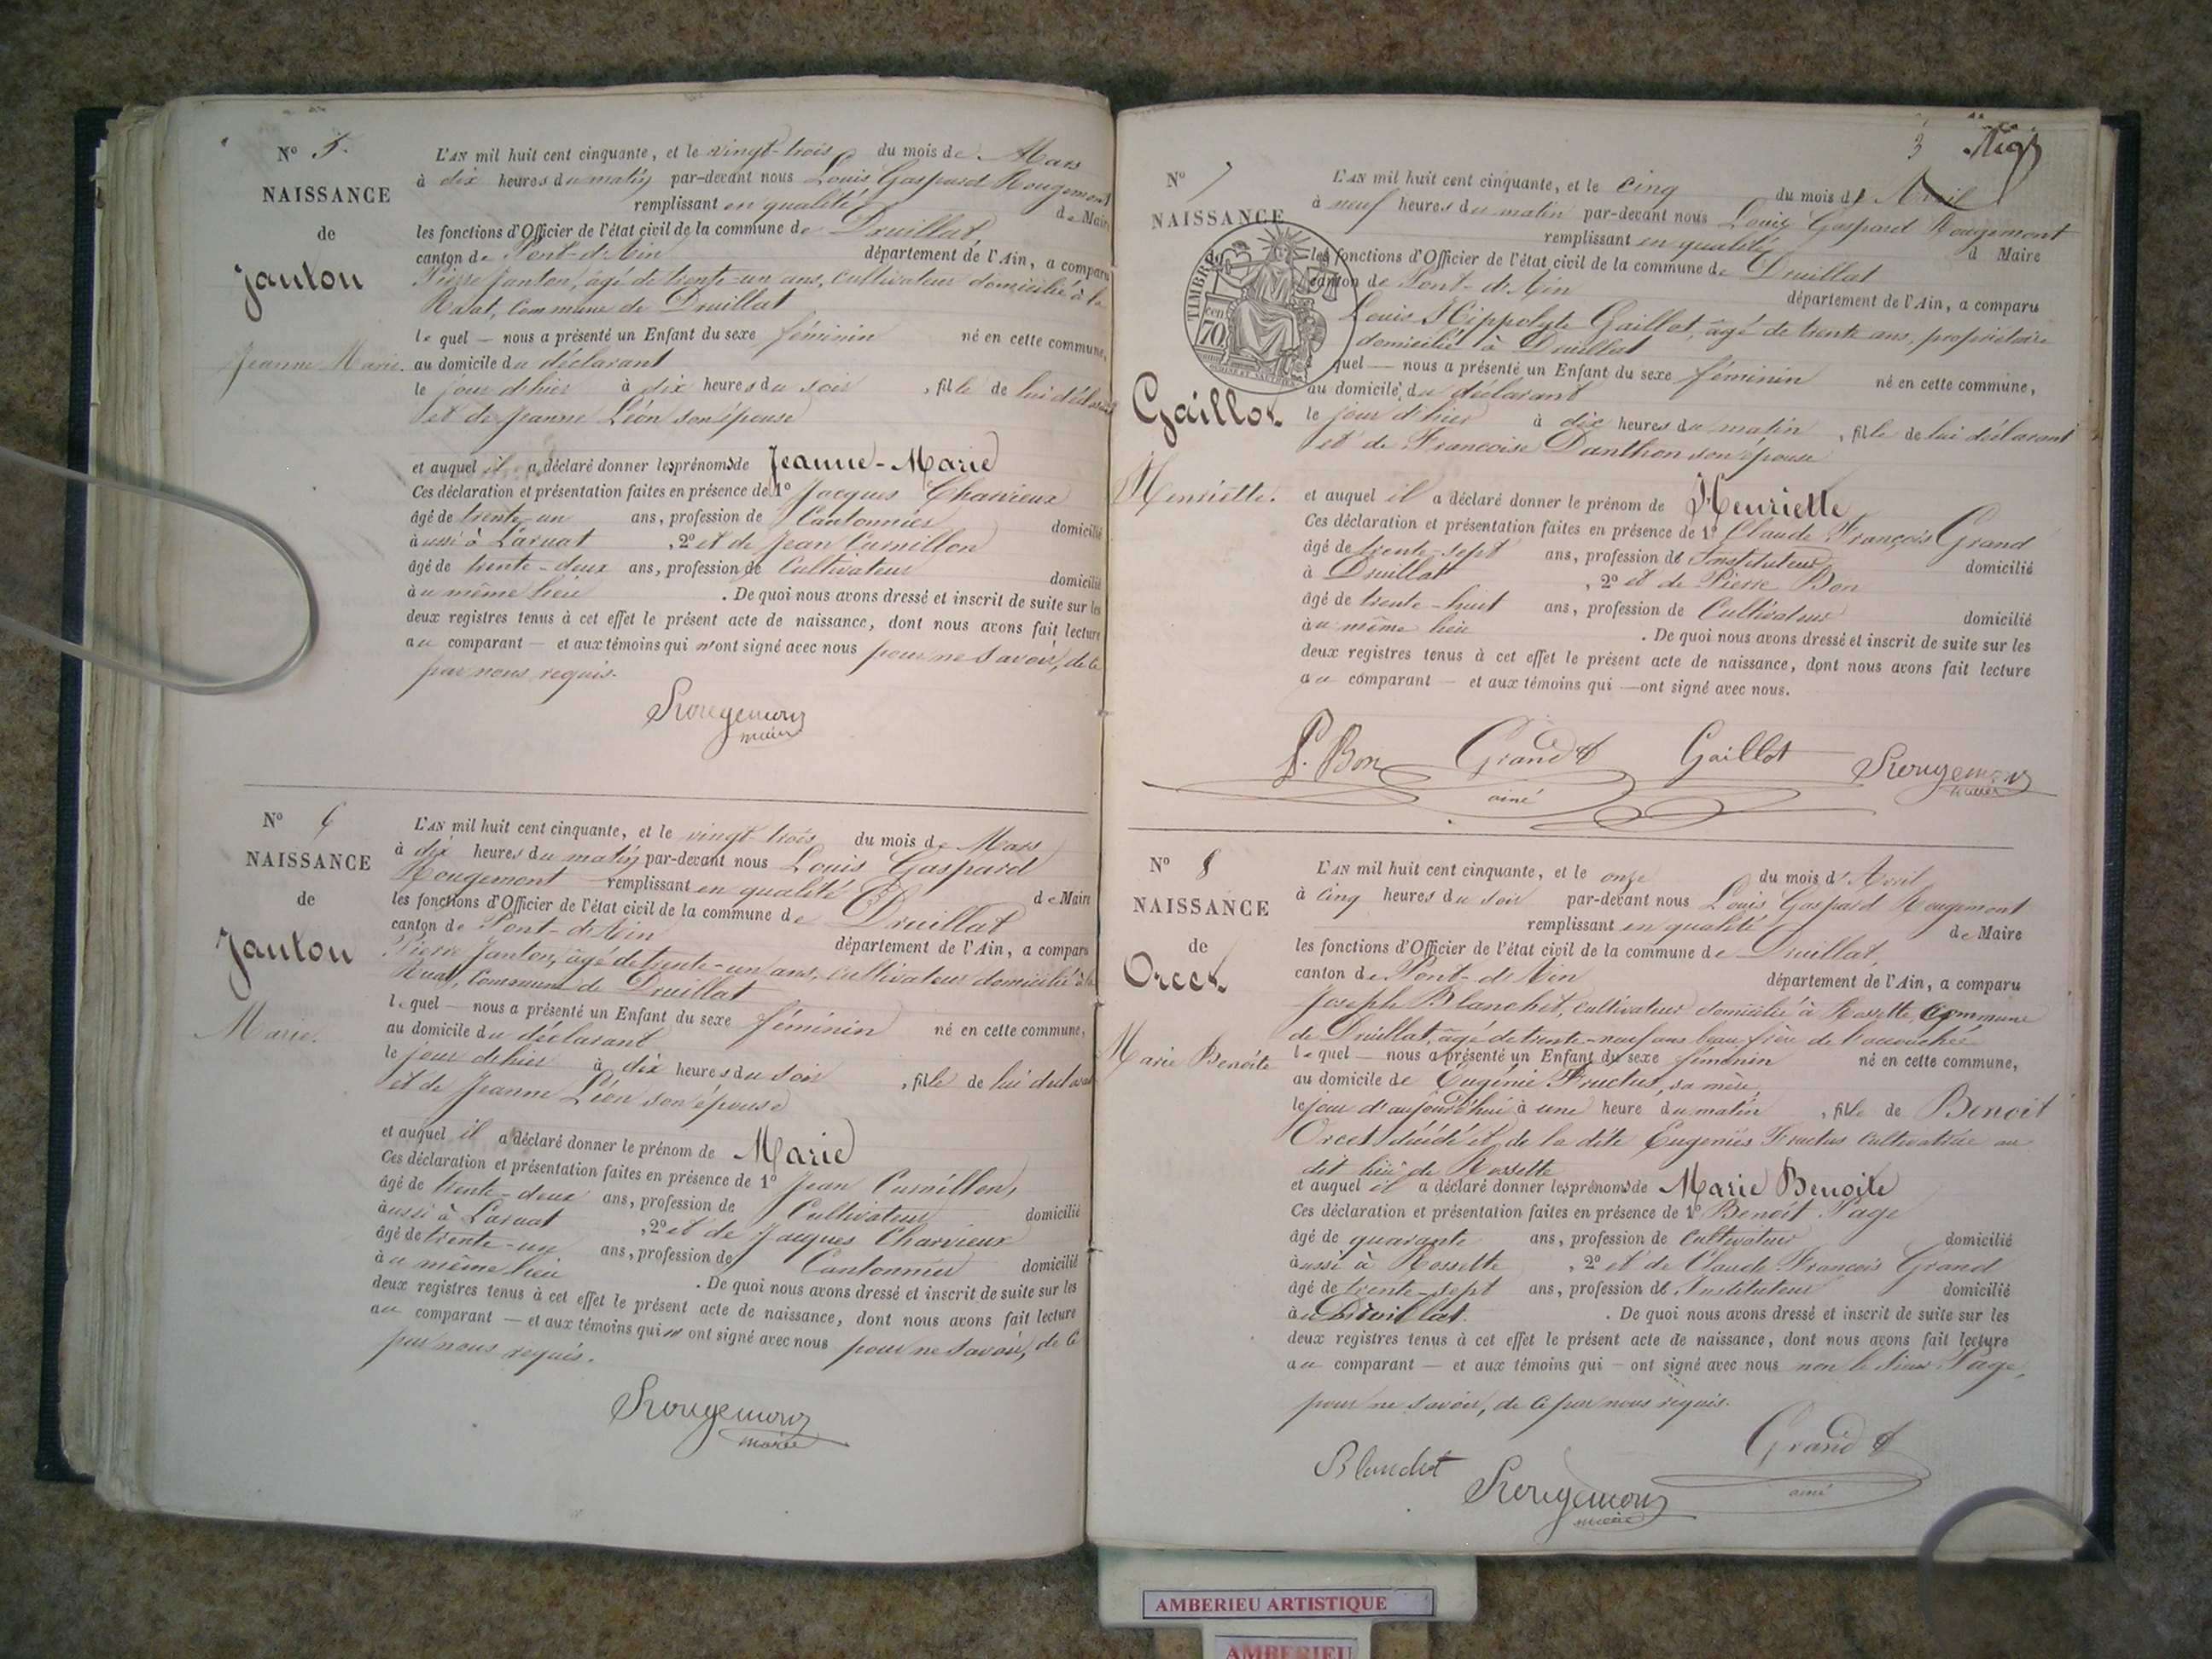 N° 5.
NAISSANCE
de
Janton
Jeanne Marie.
L'AN mil huit cent cinquante, et le vingt-trois du mois de Mars
à dix heures du matin par-devant nous Louis Gaspard Rougemont
remplissant en qualité de Maire
les fonctions d'Officier de l'état civil de la commune de Druillat
canton de Pont-d'Ain département de l'Ain, a comparu
Pierre Janton, âgé de trente-un ans, cultivateur domicilié à
commune de Druillat
lequel — nous a présenté un Enfant du sexe féminin né en cette commune,
au domicile du déclarant
le jour d'hier à dix heures du soir , fille de lui déclarant
et de Jeanne Léon son épouse
et auquel il a déclaré donner les prénoms de Jeanne-Marie
Ces déclaration et présentation faites en présence de 1° Jacques Charvieux
âgé de trente-un ans, profession de Cantonnier domicilié
aussi à , 2° et de Jean
âgé de trente-deux ans, profession de Cultivateur domicilié
au même lieu . De quoi nous avons dressé et inscrit de suite sur les
deux registres tenus à cet effet le présent acte de naissance, dont nous avons fait lecture
au comparant — et aux témoins qui n'ont signé avec nous pour ne savoir, de ce
par nous requis.
Rougemont
maire
N° 6
NAISSANCE
de
Janton
Marie.
L'AN mil huit cent cinquante, et le vingt-trois du mois de Mars
à dix heures du matin par-devant nous Louis Gaspard
Rougemont remplissant en qualité de Maire
les fonctions d'Officier de l'état civil de la commune de Druillat
canton de Pont-d'Ain département de l'Ain, a comparu
Pierre Janton, âgé de trente-un ans, cultivateur domicilié
commune de Druillat
lequel — nous a présenté un Enfant du sexe féminin né en cette commune,
au domicile du déclarant
le jour d'hier à dix heures du soir , fille de lui déclarant
et de Jeanne Léon son épouse
et auquel il a déclaré donner le prénom de Marie
Ces déclaration et présentation faites en présence de 1° Jean
âgé de trente-deux ans, profession de Cultivateur domicilié
aussi à , 2° et de Jacques Charvieux
âgé de trente-un ans, profession de Cantonnier domicilié
au même lieu . De quoi nous avons dressé et inscrit de suite sur les
deux registres tenus à cet effet le présent acte de naissance, dont nous avons fait lecture
au comparant — et aux témoins qui n'ont signé avec nous pour ne savoir, de ce
par nous requis.
Rougemont
maire
3
N° 7
NAISSANCE
TIMBRE
70
Gaillot
Henriette.
L'AN mil huit cent cinquante, et le cinq du mois d'Avril
à neuf heures du matin par-devant nous Louis Gaspard Rougemont
remplissant en qualité d Maire
les fonctions d'Officier de l'état civil de la commune de Druillat
canton de Pont-d'Ain département de l'Ain, a comparu
Louis Hippolyte Gaillot, âgé de trente ans, propriétaire
domicilié à Druillat
quel — nous a présenté un Enfant du sexe féminin né en cette commune,
au domicile du déclarant
le jour d'hier à dix heures du matin , fille de lui déclarant
et de Françoise Danthon son épouse
et auquel il a déclaré donner le prénom de Henriette
Ces déclaration et présentation faites en présence de 1° Claude François Grand
âgé de trente-sept ans, profession de Instituteur domicilié
à Druillat , 2° et de Pierre Bon
âgé de trente-huit ans, profession de Cultivateur domicilié
au même lieu . De quoi nous avons dressé et inscrit de suite sur les
deux registres tenus à cet effet le présent acte de naissance, dont nous avons fait lecture
au comparant — et aux témoins qui — ont signé avec nous.
P. Bon Grand Gaillot Rougemont
ainé maire
N° 8
NAISSANCE
de
Orcet
Marie Benoite
L'AN mil huit cent cinquante, et le onze du mois d'Avril
à cinq heures du soir par-devant nous Louis Gaspard Rougemont
remplissant en qualité de Maire
les fonctions d'Officier de l'état civil de la commune de Druillat,
canton de Pont-d'Ain département de l'Ain, a comparu
Joseph Blanchet, cultivateur domicilié à Rossette, commune
de Druillat, âgé de trente-neuf ans beau-frère de l'accouchée
lequel — nous a présenté un Enfant du sexe féminin né en cette commune,
au domicile de Eugénie Fructus, sa mère,
le jour d'aujourd'hui à une heure du matin , fille de Benoit
Orcet décédé et de la dite Eugénie Fructus cultivatrice au
dit lieu de Rossette
et auquel il a déclaré donner les prénoms de Marie Benoite
Ces déclaration et présentation faites en présence de 1° Benoit Page
âgé de quarante ans, profession de Cultivateur domicilié
aussi à Rossette , 2° et de Claude François Grand
âgé de trente-sept ans, profession de Instituteur domicilié
à Druillat . De quoi nous avons dressé et inscrit de suite sur les
deux registres tenus à cet effet le présent acte de naissance, dont nous avons fait lecture
au comparant — et aux témoins qui — ont signé avec nous non le sieur Page,
pour ne savoir, de ce par nous requis.
Grand
ainé
Blanchet Rougemont
maire
AMBERIEU ARTISTIQUE
AMBERIEU